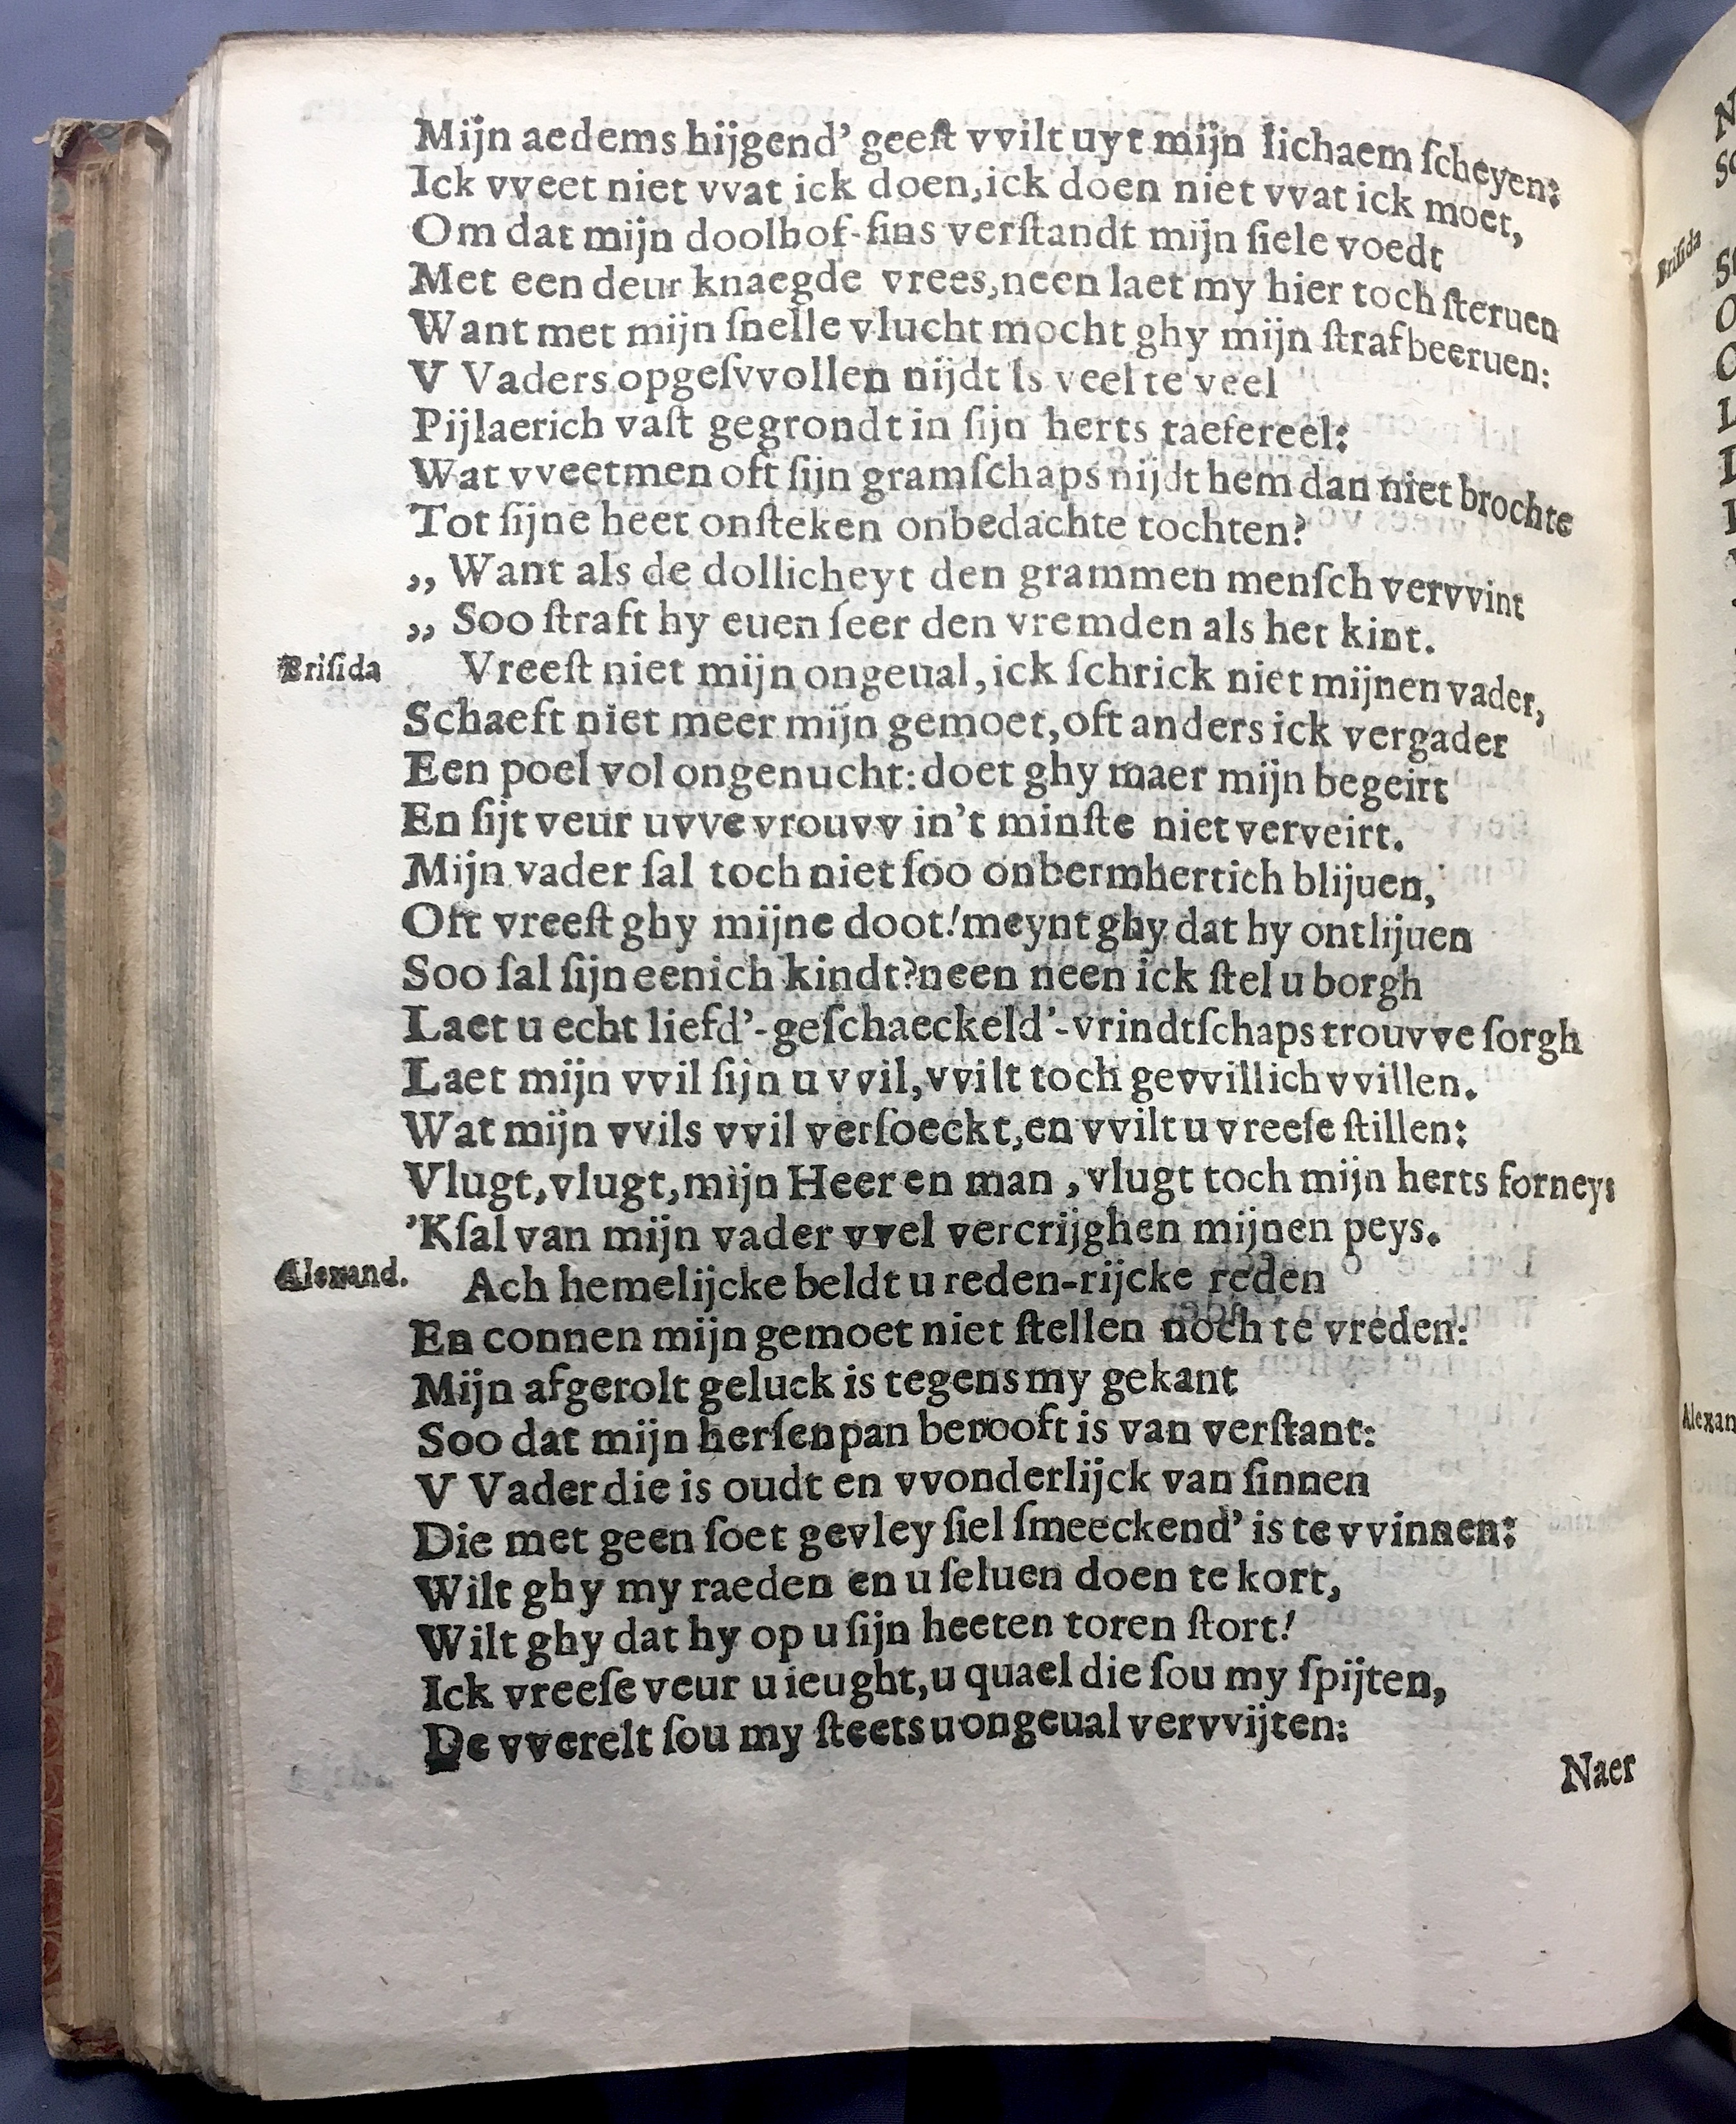 Mijn aedems hijgend’ geeſt vvilt uyt mijn lichaem ſcheyen:
Ick vveet niet vvat ick doen, ick doen niet vvat ick moet,
Om dat mijn doolhof-ſins verſtandt mijn ſiele voedt
Met een deur knaegde vrees, neen laet my hier toch ſteruen
Want met mijn ſnelle vlucht mocht ghy mijn ſtraf beeruen:
V Vaders opgeſvvollen nijdt is veel te veel
Pijlaerich vaſt gegrondt in ſijn herts taefereel:
Wat vveetmen oft ſijn gramſchaps nijdt hem dan niet brochte
Tot ſijne heet onſteken onbedachte tochten?
„ Want als de dollicheyt den grammen menſch vervvint
„ Soo ſtraft hy euen ſeer den vremden als het kint.
Briſida Vreeſt niet mijn ongeual, ick ſchrick niet mijnen vader,
Schaeft niet meer mijn gemoet, oft anders ick vergader
Een poel vol ongenucht: doet ghy maer mijn begeirt
En ſijt veur uvve vrouvv in’t minſte niet verveirt.
Mijn vader ſal toch niet ſoo onbermhertich blijuen,
Oft vreeſt ghy mijne doot! meynt ghy dat hy ontlijuen
Soo ſal ſijn eenich kindt? neen neen ick ſtel u borgh
Laet u echt liefd’-geſchaeckeld’-vrindtſchaps trouvve ſorgh
Laet mijn vvil ſijn u vvil, vvilt toch gevvillich vvillen.
Wat mijn vvils vvil verſoeckt, en vvilt u vreeſe ſtillen:
Vlugt, vlugt, mijn Heer en man, vlugt toch mijn herts forneys
’Kſal van mijn vader vvel vercrijghen mijnen peys.
Alexand. Ach hemelijcke beldt u reden-rijcke reden
En connen mijn gemoet niet ſtellen noch te vreden:
Mijn afgerolt geluck is tegens my gekant
Soo dat mijn herſenpan berooft is van verſtant:
V Vader die is oudt en vvonderlijck van ſinnen
Die met geen ſoet gevley ſiel ſmeeckend’ is te vvinnen:
Wilt ghy my raeden en u ſeluen doen te kort,
Wilt ghy dat hy op u ſijn heeten toren ſtort!
Ick vreeſe veur u ieught, u quael die ſou my ſpijten,
De vverelt ſou my ſteets u ongeual vervvijten:
Naer
Briſida
Alexan